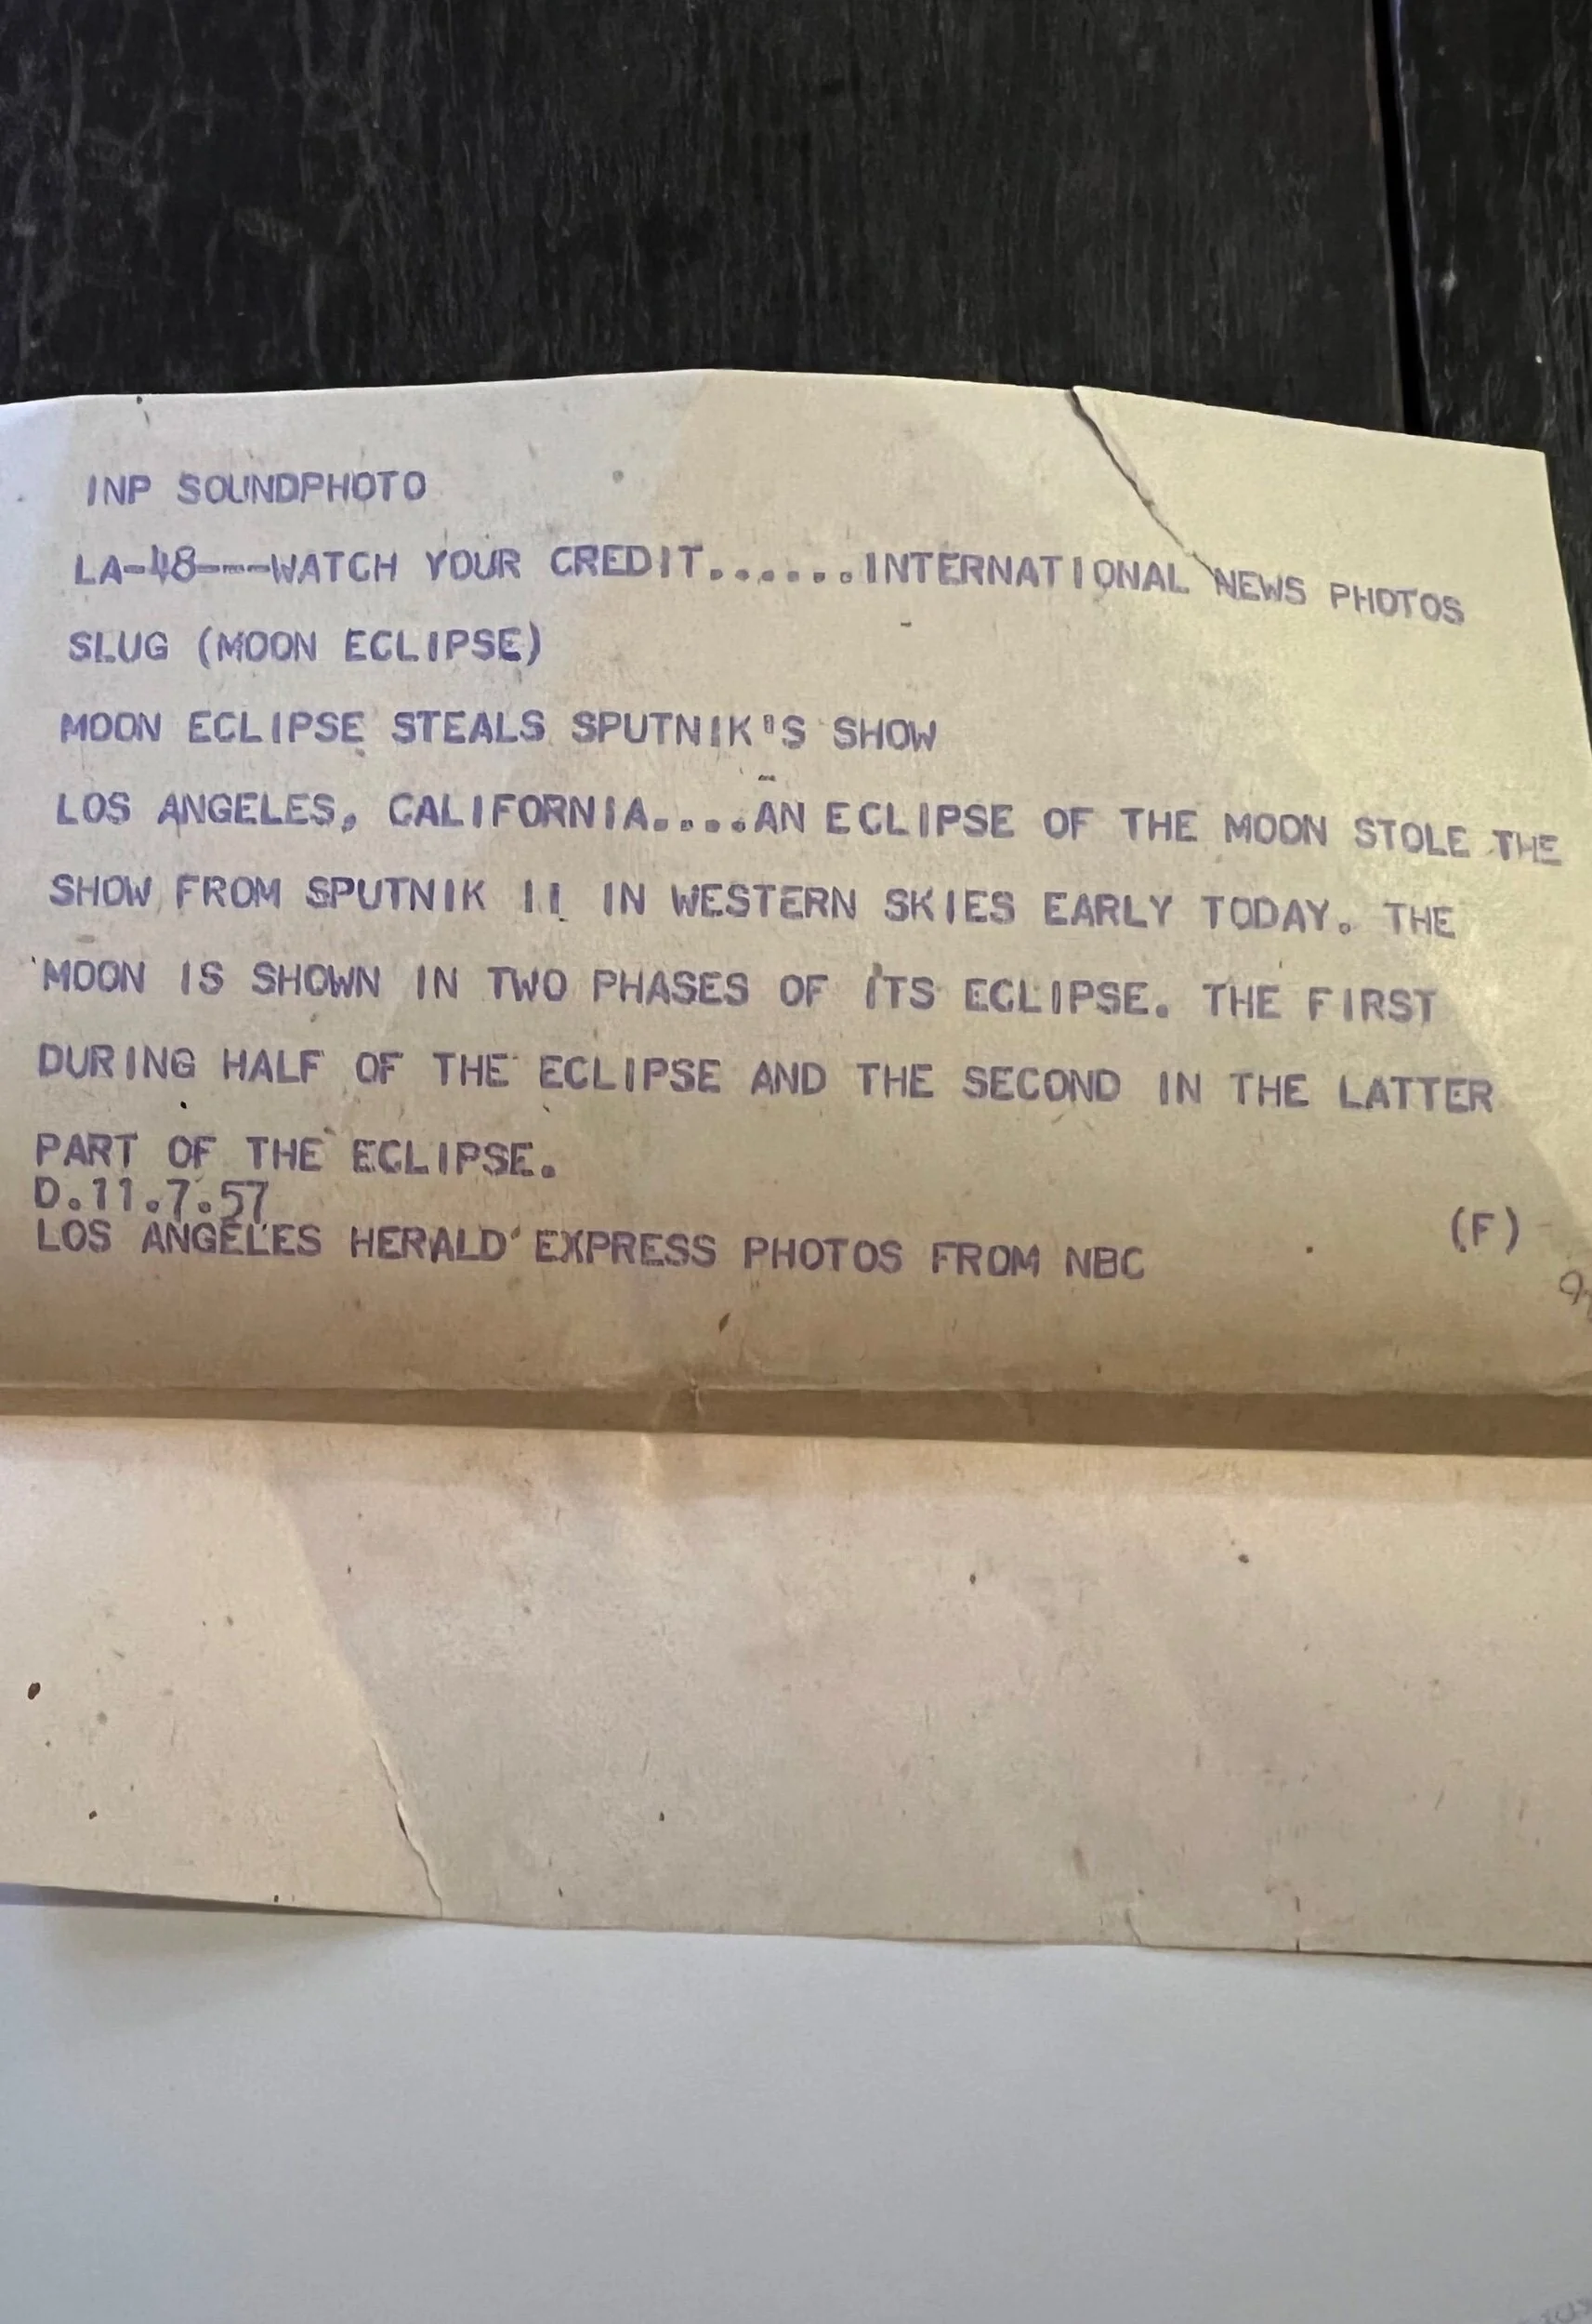 INP SOUNDPHOTO
LA-48---WATCH YOUR CREDIT.......INTERNATIONAL NEWS PHOTOS
SLUG (MOON ECLIPSE)
MOON ECLIPSE STEALS SPUTNIK'S SHOW
LOS ANGELES, CALIFORNIA....AN ECLIPSE OF THE MOON STOLE THE
SHOW FROM SPUTNIK II IN WESTERN SKIES EARLY TODAY. THE
MOON IS SHOWN IN TWO PHASES OF ITS ECLIPSE. THE FIRST
DURING HALF OF THE ECLIPSE AND THE SECOND IN THE LATTER
PART OF THE ECLIPSE.
D.11.7.57
LOS ANGELES HERALD EXPRESS PHOTOS FROM NBC (F)